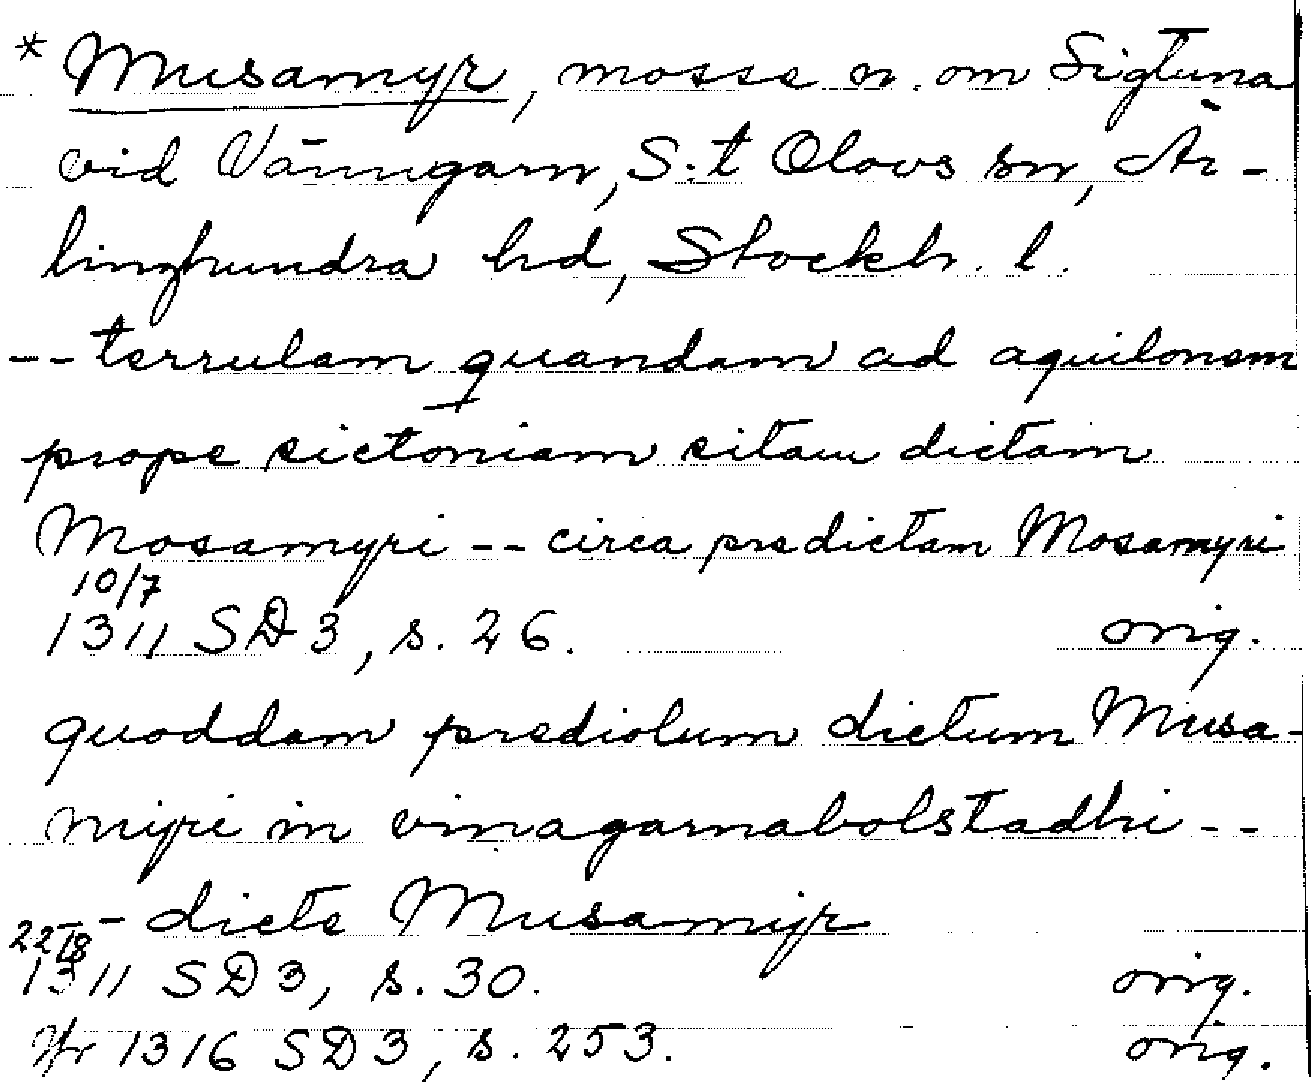 * Musamyr, mosse n. om Sigtuna
vid Vänngarn, S:t Olovs sn, Är-
linghundra hd, Stockh. l.
-- terrulam quandam ad aquilonem
prope sictoniam sitam dictam
Mosamyri -- circa predictam Mosamyri
10/7
1311 SD 3, s. 26. orig.
quoddam prediolum dictum Musa-
myri in vinagarnabolstadhi --
- dicte Musamyr
22/8
1311 SD 3, s. 30. orig.
1316 SD 3, s. 253. orig.